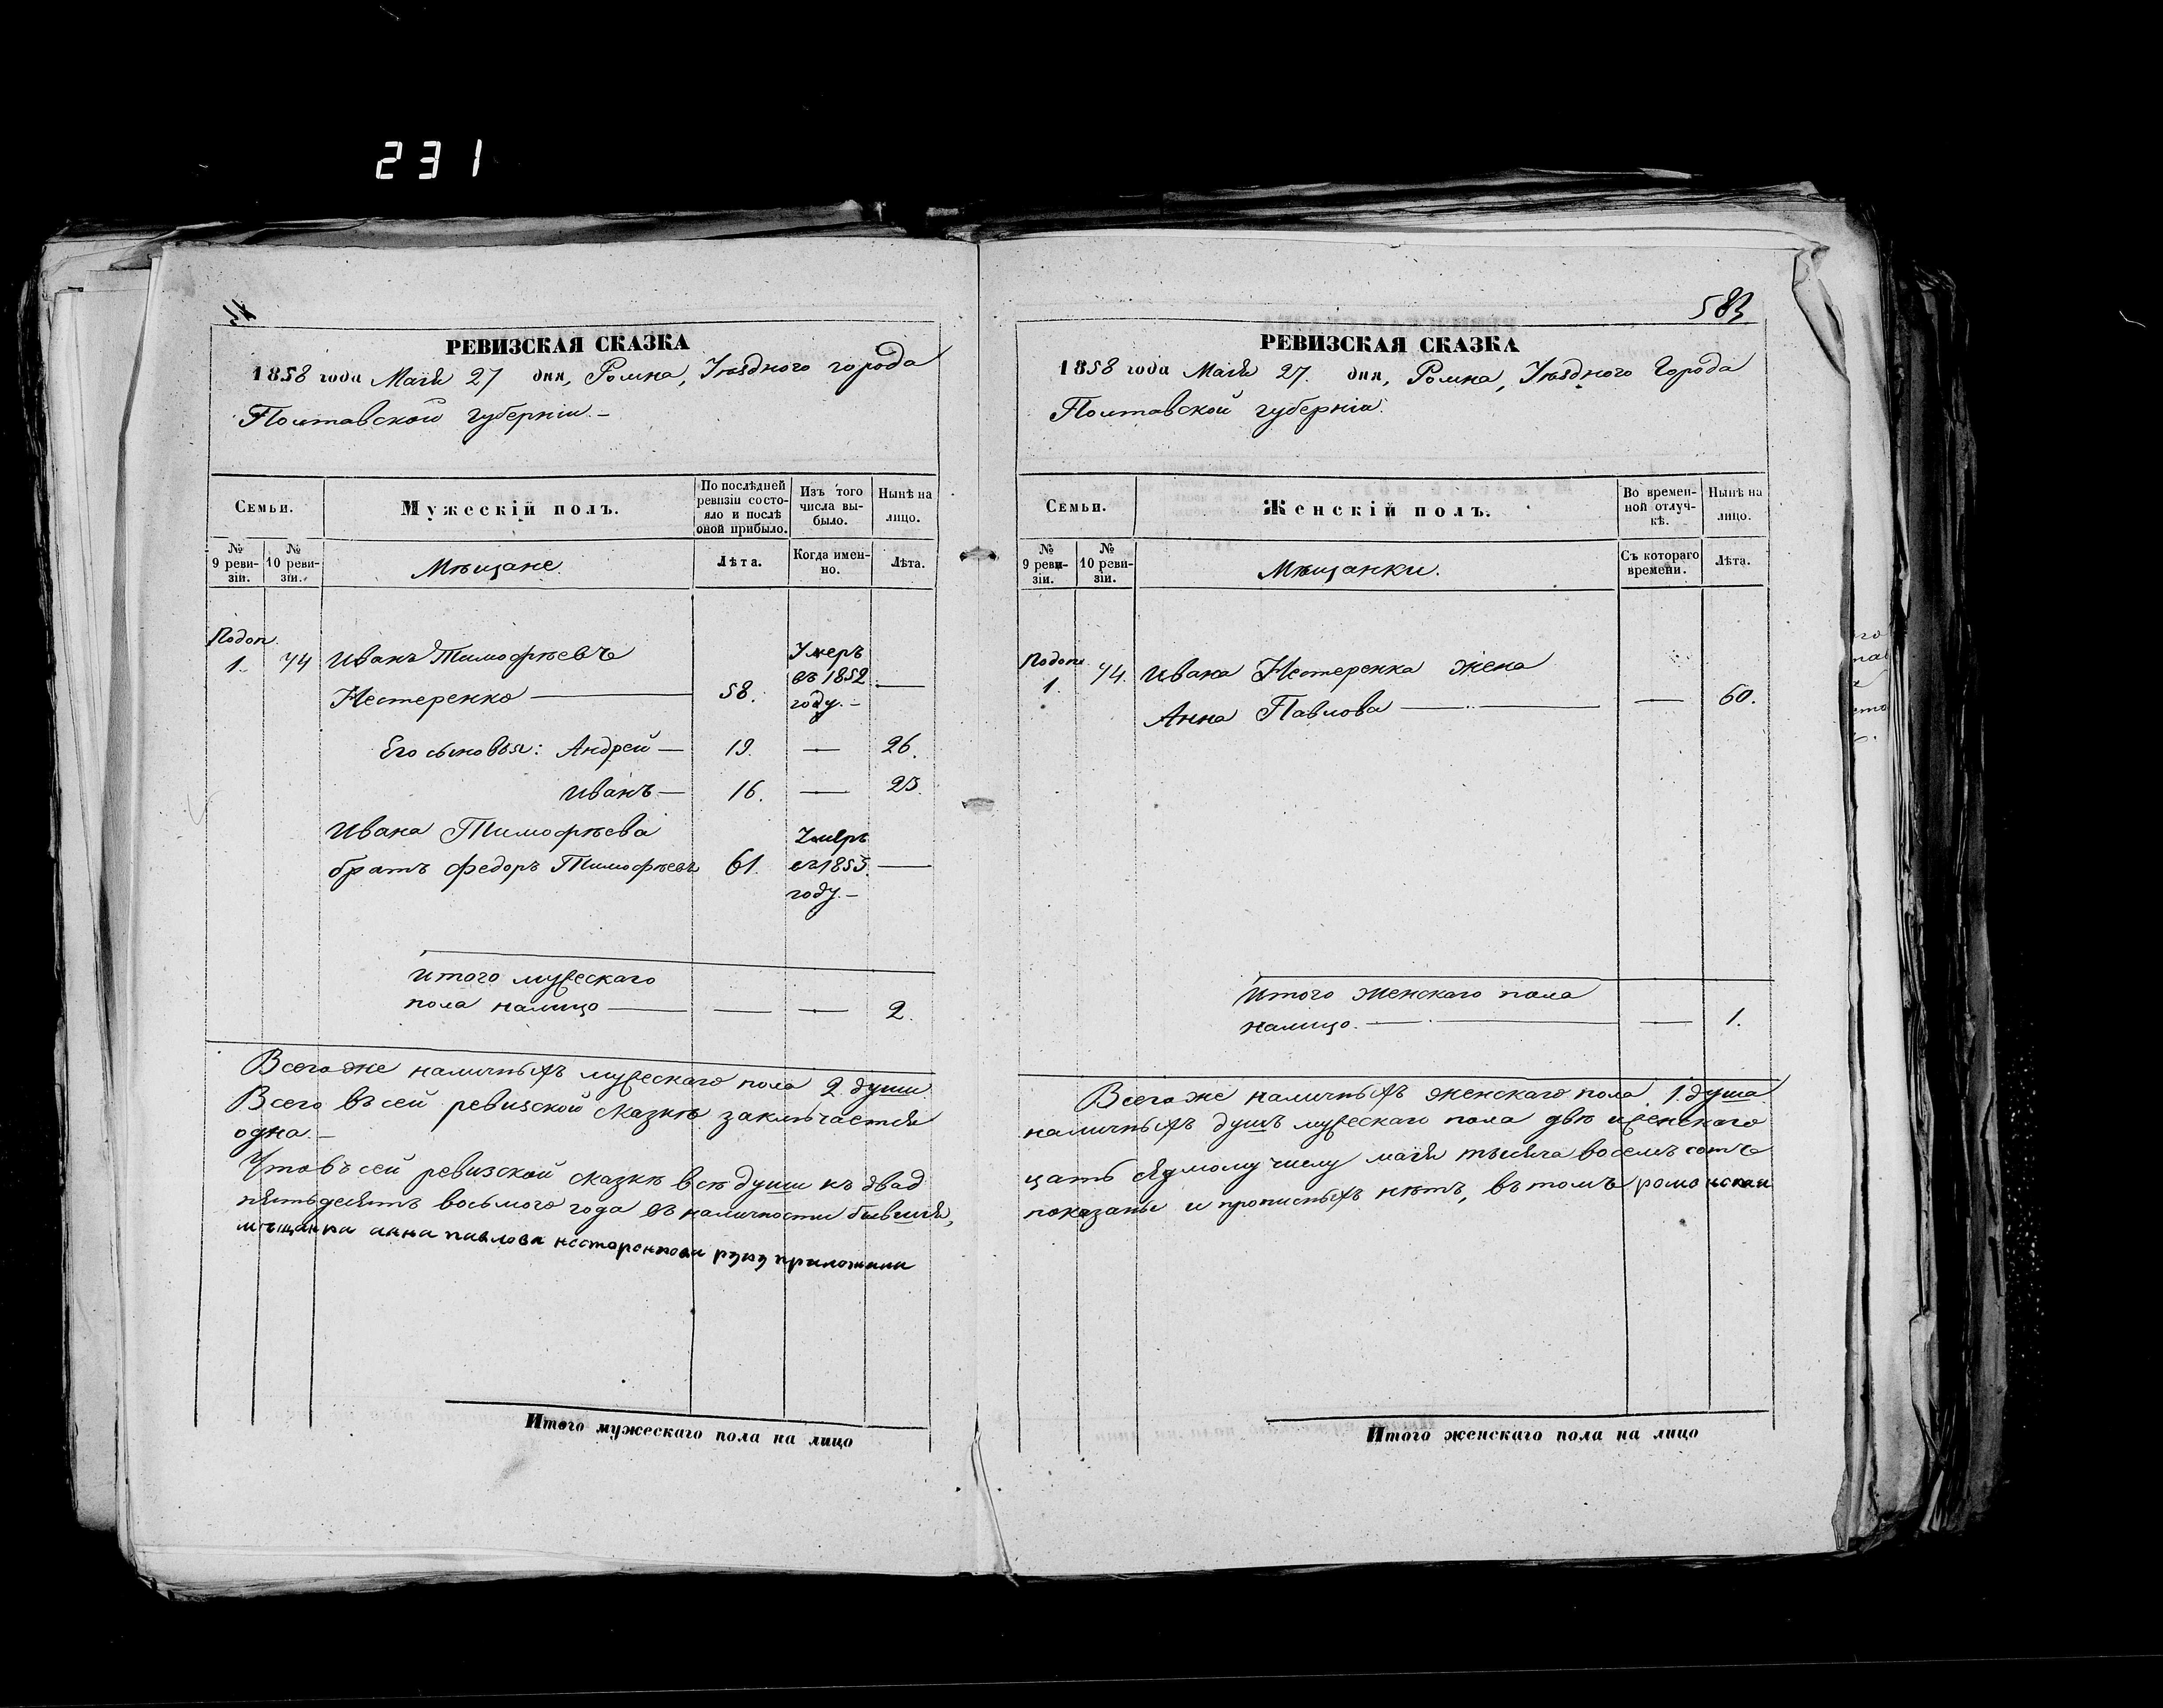 231
РЕВИЗСКАЯ СКАЗКА
1858 года Маія 27 дня, Ромна, Уѣзднаго города
Полтавской губерніи.-
Семьи.
Мужескій полъ.
По послѣдней ревизіи состояло и послѣ оной прибыло.
Изъ того числа выбыло.
Нынѣ на лицо.
№ 9 ревизіи.
№ 10 ревизіи.
Мѣщане.
Лѣта.
Когда именно.
Лѣта.
Подоп.
1. 74 Иванъ Тимофѣевъ
Нестеренко — 58. Умеръ въ 1852 году.- —
Его сыновья: Андрей — 19. — 26.
Иванъ — 16. — 23.
Ивана Тимофѣева
братъ Федоръ Тимофѣевъ 61. Умеръ въ 1855 году.- —
Итого мужескаго
пола налицо — — — 2.
Всего же наличныхъ мужескаго пола 2 души
Всего въ сей ревизской сказкѣ заключается
одна.-
Что въ сей ревизской сказкѣ всѣ души къ двад
пятьдесятъ восьмого года въ наличности бывшія,
мѣщанка анна павлова нестеренкова руку приложила
Итого мужескаго пола на лицо
583
РЕВИЗСКАЯ СКАЗКА
1858 года Маія 27. дня, Ромна, Уѣзднаго Города
Полтавской губерніи.
Семьи.
Женскій полъ.
Во временной отлучкѣ.
Нынѣ на лицо.
№ 9 ревизіи.
№ 10 ревизіи.
Мѣщанки.
Съ котораго времени.
Лѣта.
Подоп.
1. 74. Ивана Нестеренка жена
Анна Павлова — — 60.
Итого женскаго пола
налицо. — — 1.
Всего же наличныхъ женскаго пола 1. душа
наличныхъ душъ мужескаго пола двѣ и женскаго
цать седмому числу маія тысяча восемъ сотъ
показаны и прописныхъ нѣтъ, въ томъ роменская
Итого женскаго пола на лицо